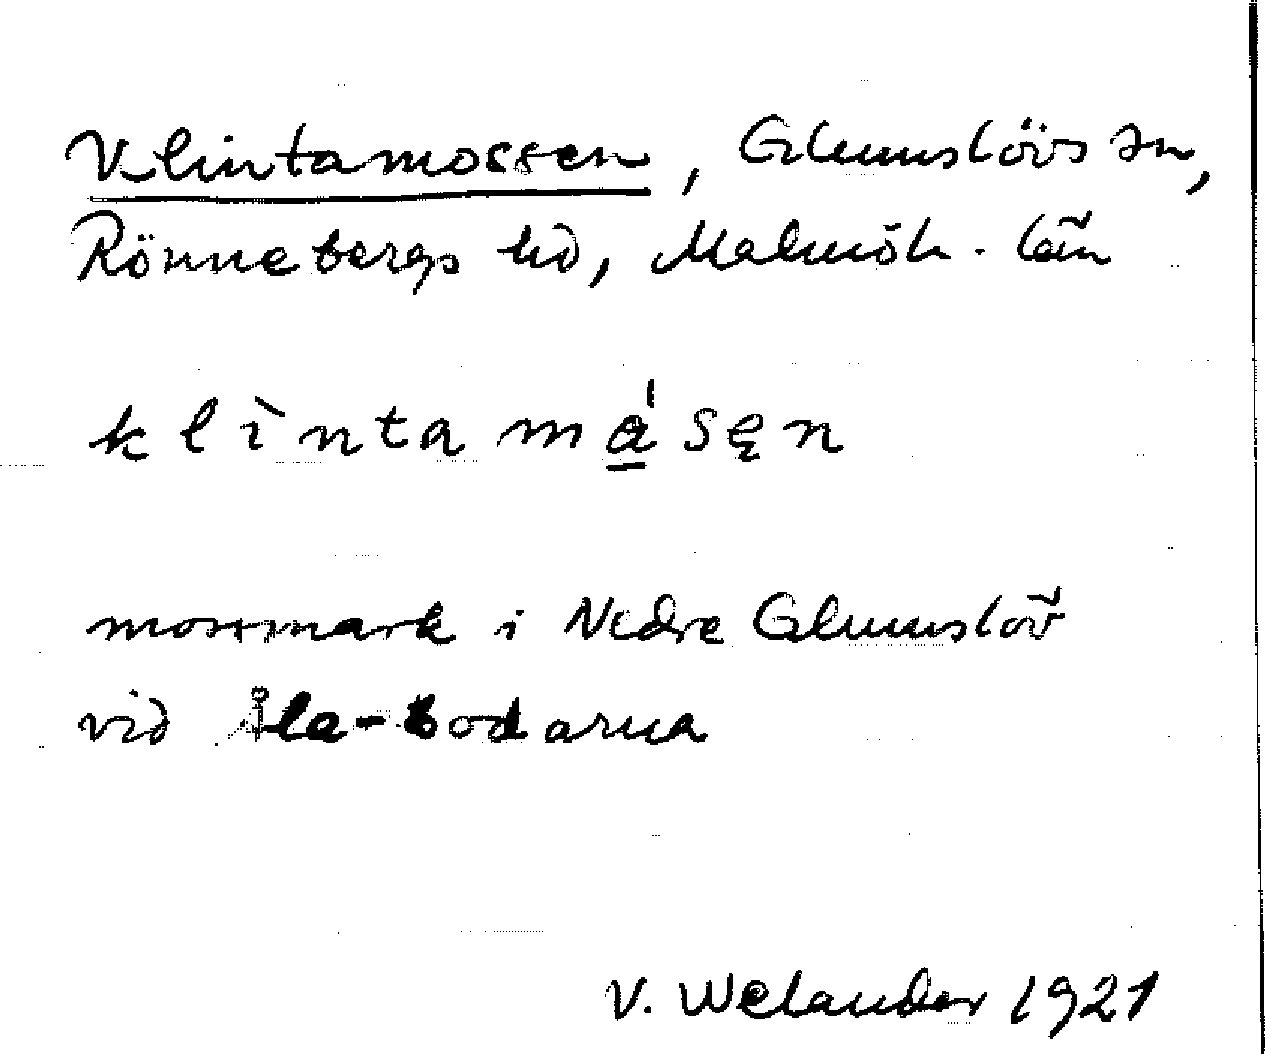 Klintamossen, Glumslövs sn,
Rönnebergs hd, Malmöh. län
klìntamásęn
mossmark i Nedre Glumslöv
vid Åla-bodarna
V. Welander 1921